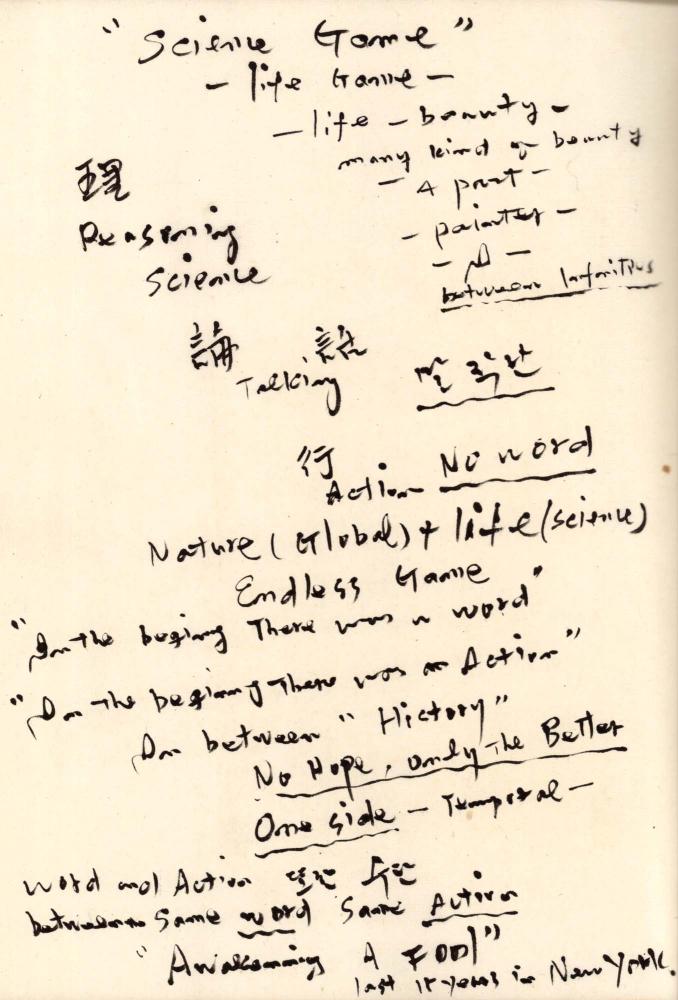 "Science Game"
- life Game -
- life - beauty -
many kind of beauty
- A poet -
理
Reasoning
- painter -
Science
between Infinitus
論 語
Talking
行
Action No word
Nature (Global) + life (science)
Endless Game
"In the begining There was a word"
"In the begining There was an Action"
In between "Hictory"
No Hope, only The Better
One side - Temporal -
word and Action 수단
between same word same Action
"Awakenning A FOOl"
last 15 years in New York.